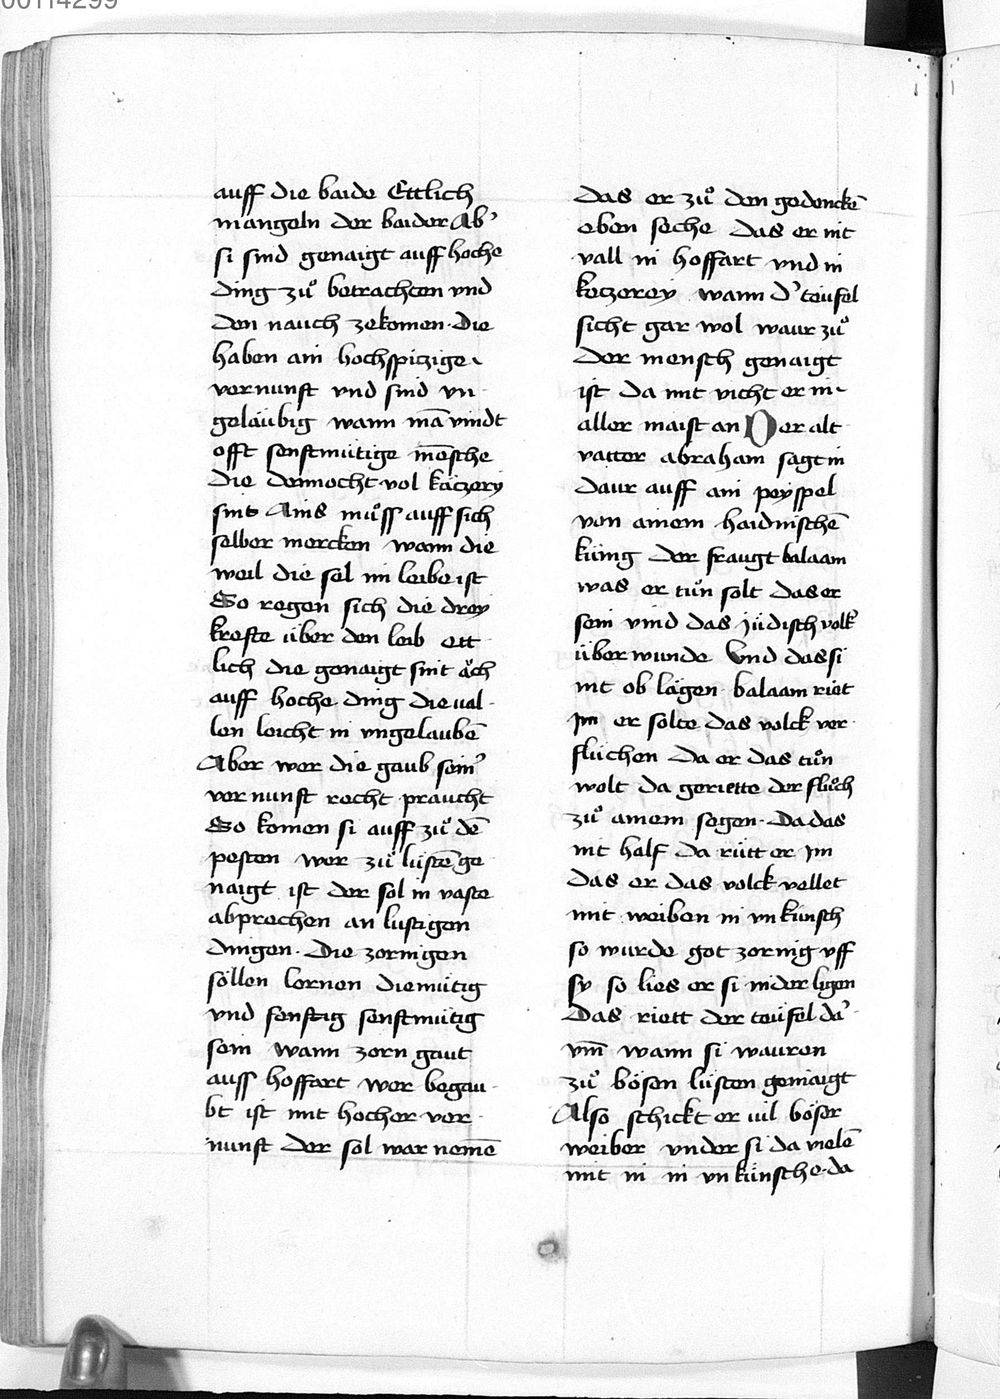 00114299
auff die baide Ettlich
mangeln der baider Ab’
si sind genaigt auff hoche
ding zuͦ betrachten vnd
den nauch zekomen · Die
haben ain hochspiczige
vernunft vnd sind vn
geläubig wann mā vindt
offt senftmütige mēsche
die dennocht vol käczery
sint Ains muͦss auff sich
selber mercken wann die
weil die sel im leibe ist
So regen sich die drey
krefte über den leib ett
lich die genaigt sint äch
auff hoche ding die val
len leicht in vngelaubē
Aber wer die gaub sein’
vernunft recht praucht
So komen si auff zuͦ dē
pesten wer zuͦ lüstē ge
naigt ist der sol in vaste
abprechen an lustigen
dingen · Die zornigen
söllen lernen diemütig
vnd senftig senftmütig
sein wann zorn gaut
auss hoffart wer begau
bt ist mit hocher ver
nunft der sol war nemē
das er zuͦ den gedenckē
eben seche das er nit
vall in hoffart vnd in
keczerey wann d’ teufel
sicht gar wol waur zuͦ
der mensch genaigt
ist da mit vicht er in
aller maist an Der alt
vatter abraham sagt in
daur auff ain peyspel
von ainem haidnischē
küng der fraugt balaam
was er tuͦn solt das er
sein vind das jüdisch volk
über wunde Vnd das si
nit ob lägen balaam riet
jm er solte das volck ver
fluchen Da er das tuͦn
wolt da geriette der fluͦch
zuͦ ainem segen · Da das
nit half da rütt er jm
das er das volck vellet
mit weiben in vnkünsch
so wurde got zornig vff
sy so lies er si nider ligen
Das riett der teüfel da’
vm̄ wann si wauren
zuͦ bösen lüsten genaigt
Also schickt er vil böser
weiber vnder si da vielē
mit in in vnkünsche · da